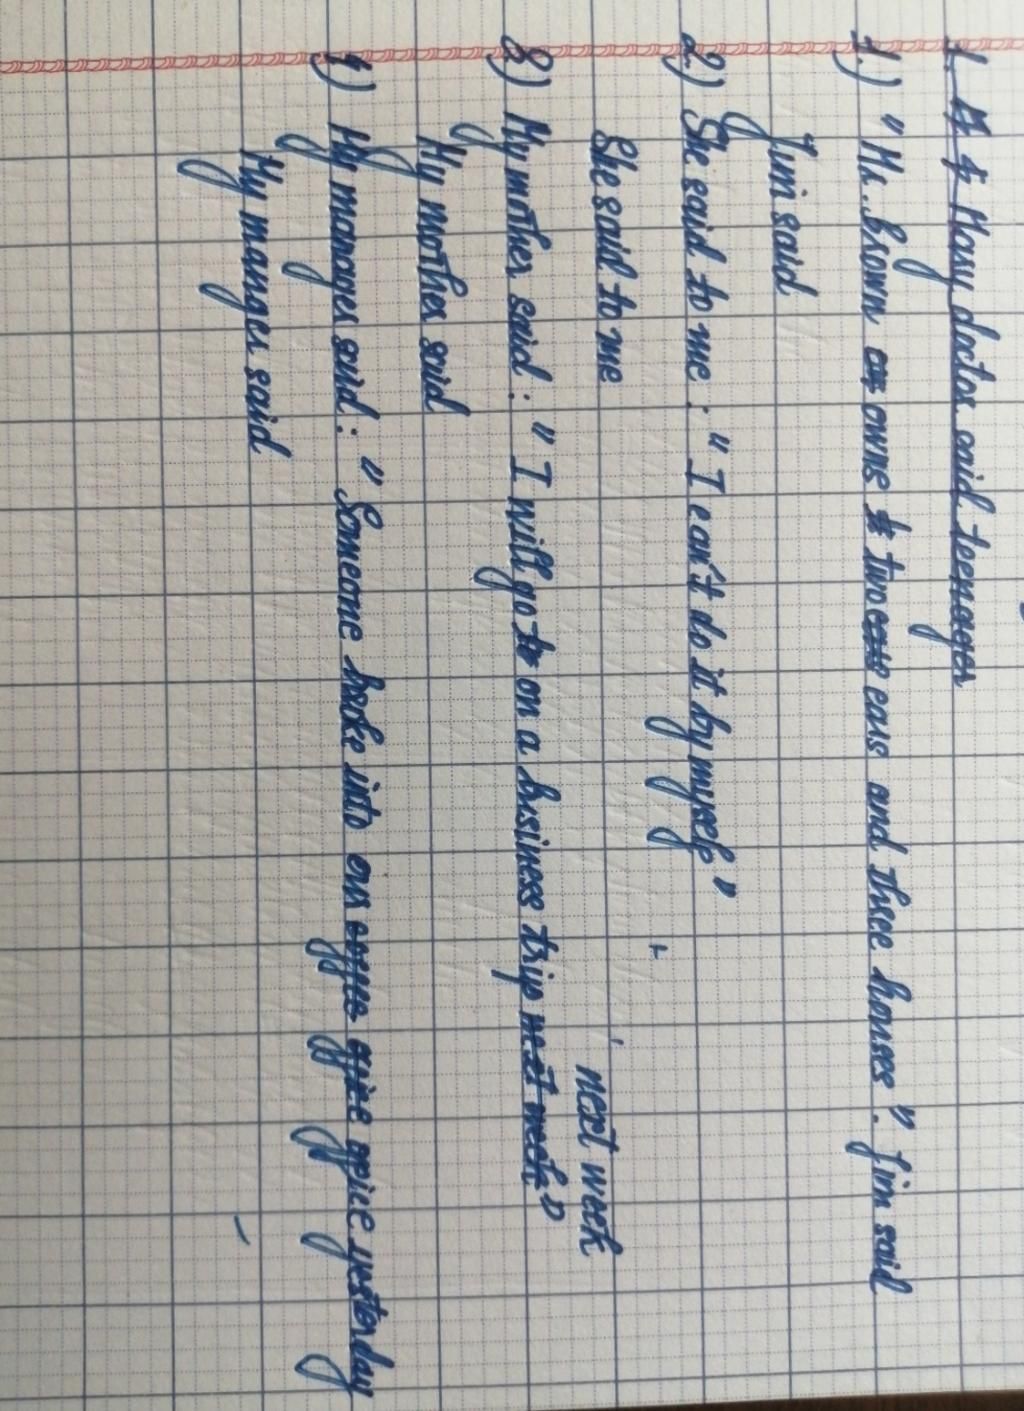 1. Many doctor said teenager
1.) "Mr. Brown owns two cars and three houses". Jim said
Jim said
2) She said to me: "I can't do it by myself"
She said to me
next week
3) My mother said: "I will go on a business trip next week"
My mother said
4) My manager said: "Someone broke into our office yesterday
My manger said